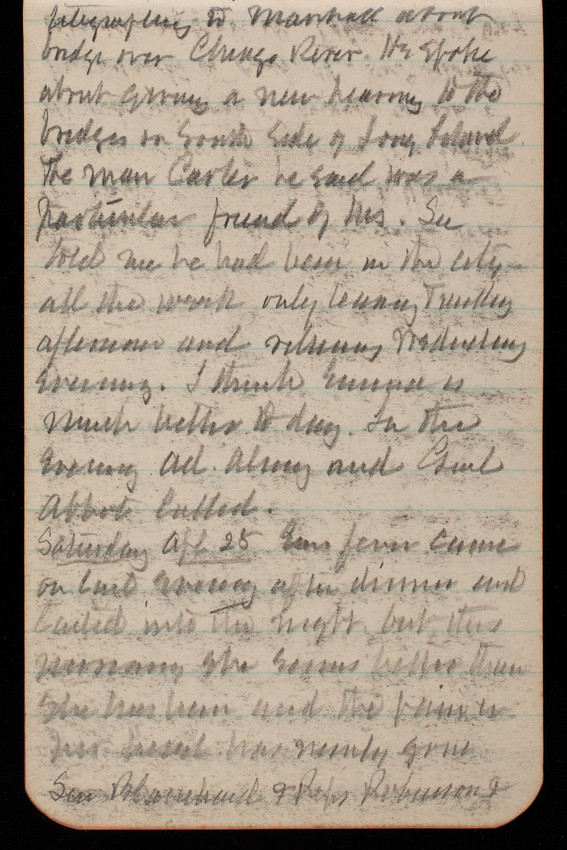 telegraphing to Marshall about
bridge over Chicago River. He spoke
about giving a new hearing to the
bridges on South side of Long Island.
The man Carter he said was a
particular friend of his. He
told me he had been in the city
all the week only leaving Tuesday
afternoon and returning Wednesday
Evening. I think Emma is
much better to day. In the
Evening Ad. and Genl
Abbot called.
Saturday Apl 25 Ems fever came
on last Evening after dinner and
lasted into the night, but this
morning she seems better than
she has been and the pain in
her head has nearly gone
Sen Blanchard & Reps Robinson &